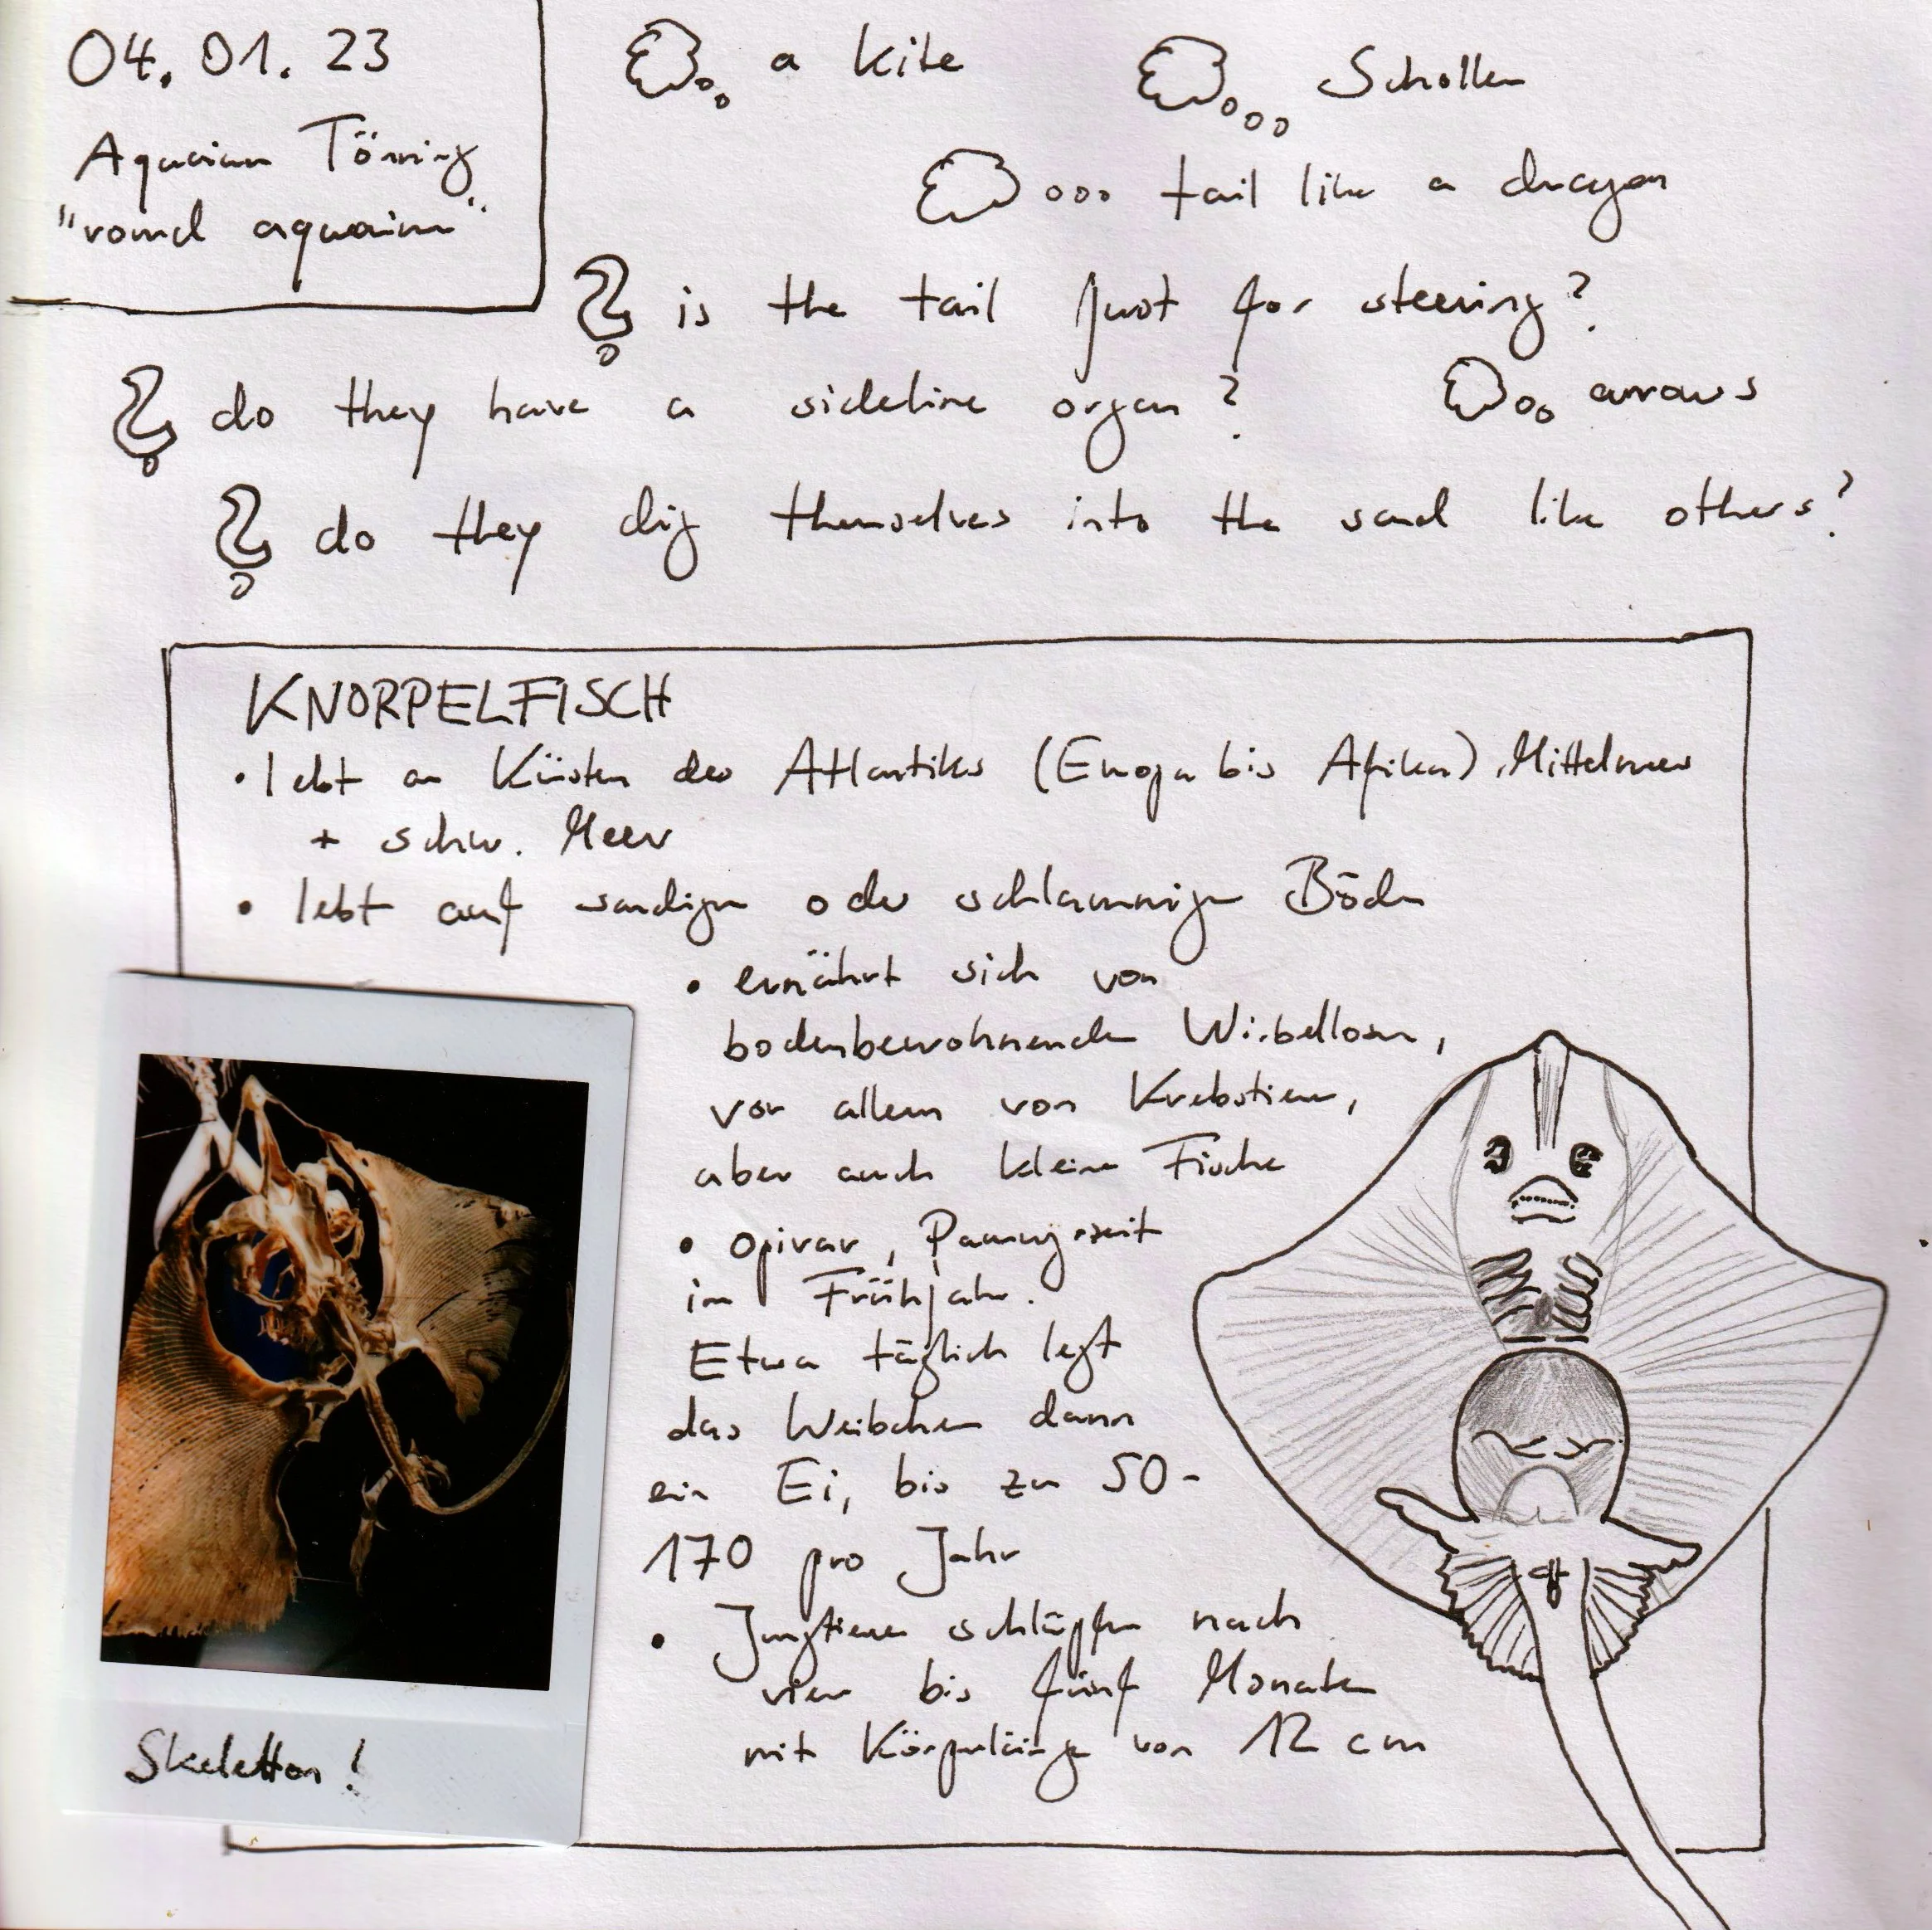 04. 01. 23
Aquarium Tönning
"round aquarium"
a kite
Schollen
tail like a dragon
is the tail just for steering?
do they have a sideline organ?
arrows
do they dig themselves into the sand like others?
KNORPELFISCH
• lebt an Küsten des Atlantiks (Europa bis Afrika), Mittelmeer
+ schw. Meer
• lebt auf sandigen oder schlammigen Böden
• ernährt sich von
bodenbewohnenden Wirbellosen,
vor allem von Krebstieren,
aber auch kleine Fische
• opivar, Paarungszeit
im Frühjahr.
Etwa täglich legt
das Weibchen dann
ein Ei, bis zu 50-
170 pro Jahr
• Jungtiere schlüpfen nach
vier bis fünf Monaten
mit Körperlänge von 12 cm
Skeletton!